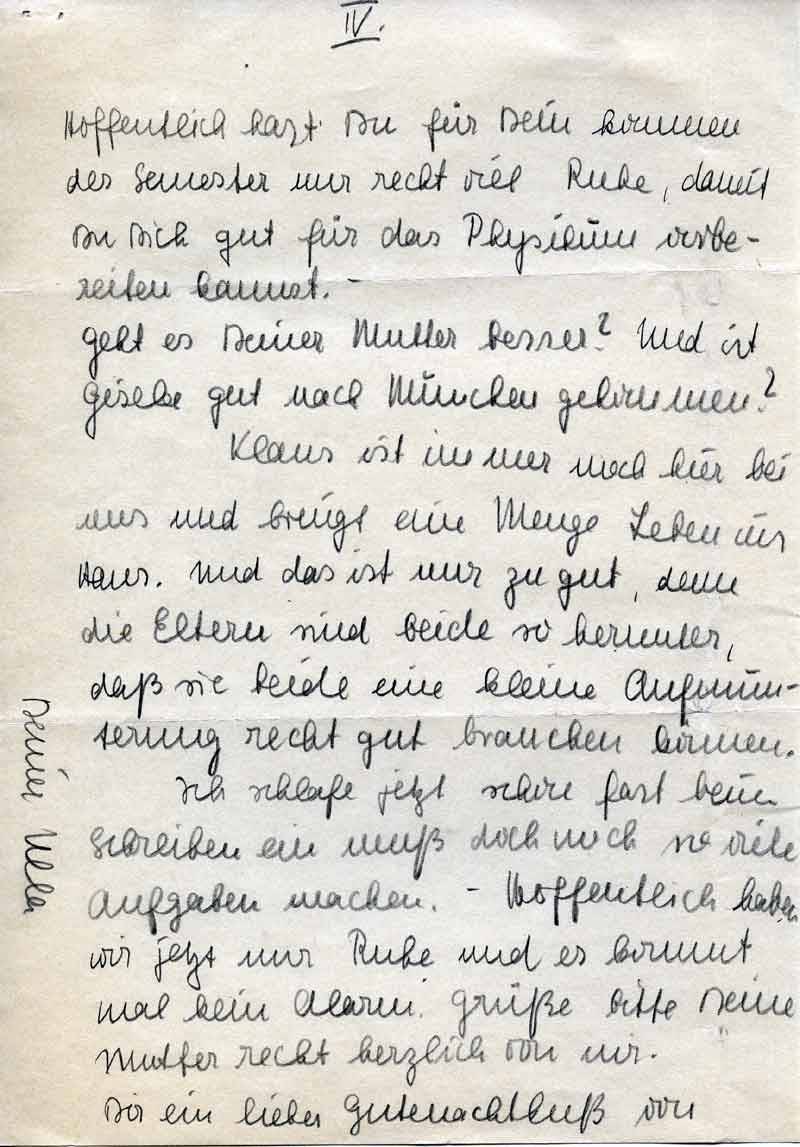 IV.
Hoffentlich hast Du für Dein kommen
des Semester nur recht viel Ruhe, damit
Du Dich gut für das Physikum vorbe-
reiten kannst. -
Geht es Deiner Mutter besser? Und ist
Gisela gut nach München gekommen?
Klaus ist immer noch hier bei
uns und bringt eine Menge Leben ins
Haus. Und das ist nur zu gut, denn
die Eltern sind beide so herunter,
daß sie beide eine kleine Aufmun-
terung recht gut brauchen können.
Ich schlafe jetzt schon fast beim
Schreiben ein muß doch noch so viele
Aufgaben machen. - Hoffentlich haben
wir jetzt nur Ruhe und es kommt
mal kein Alarm. Grüße bitte Deine
Mutter recht herzlich von mir.
Dir ein lieber Gutenachtkuß von
Deiner Ulla